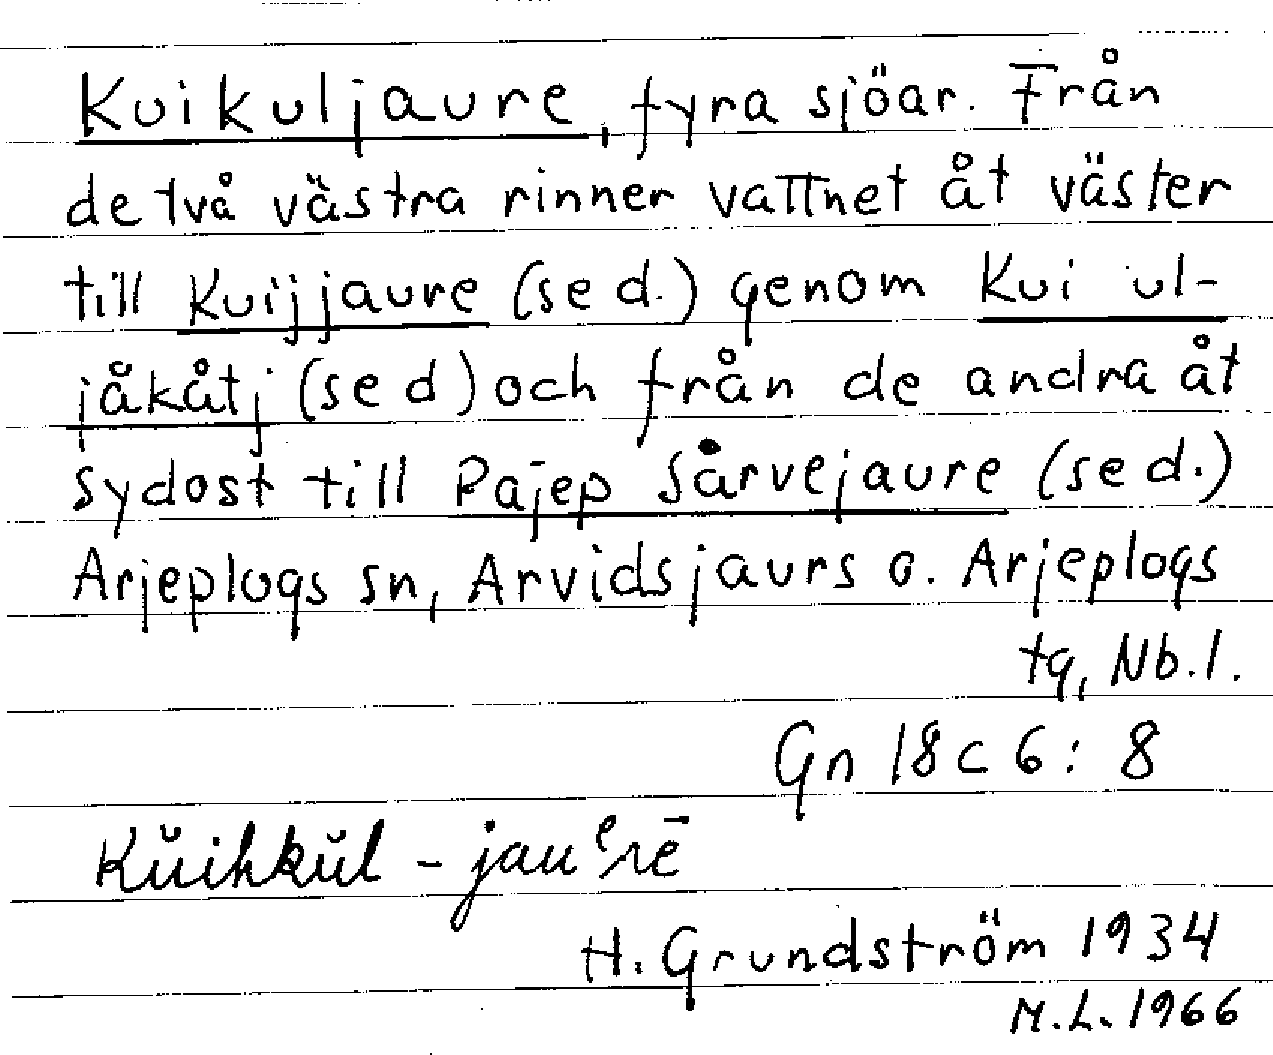 Kuikuljaure, fyra sjöar. Från
de två västra rinner vattnet åt väster
till Kuijjaure (se d.) genom Kui ul-
jåkåtj (se d) och från de andra åt
sydost till Pajep Sårvejaure (se d.)
Arjeplogs sn, Arvidsjaurs o. Arjeplogs
tg, Nb.l.
Gn 18c 6: 8
Kŭihkŭl - jauᵉrē
H. Grundström 1934
M.L. 1966